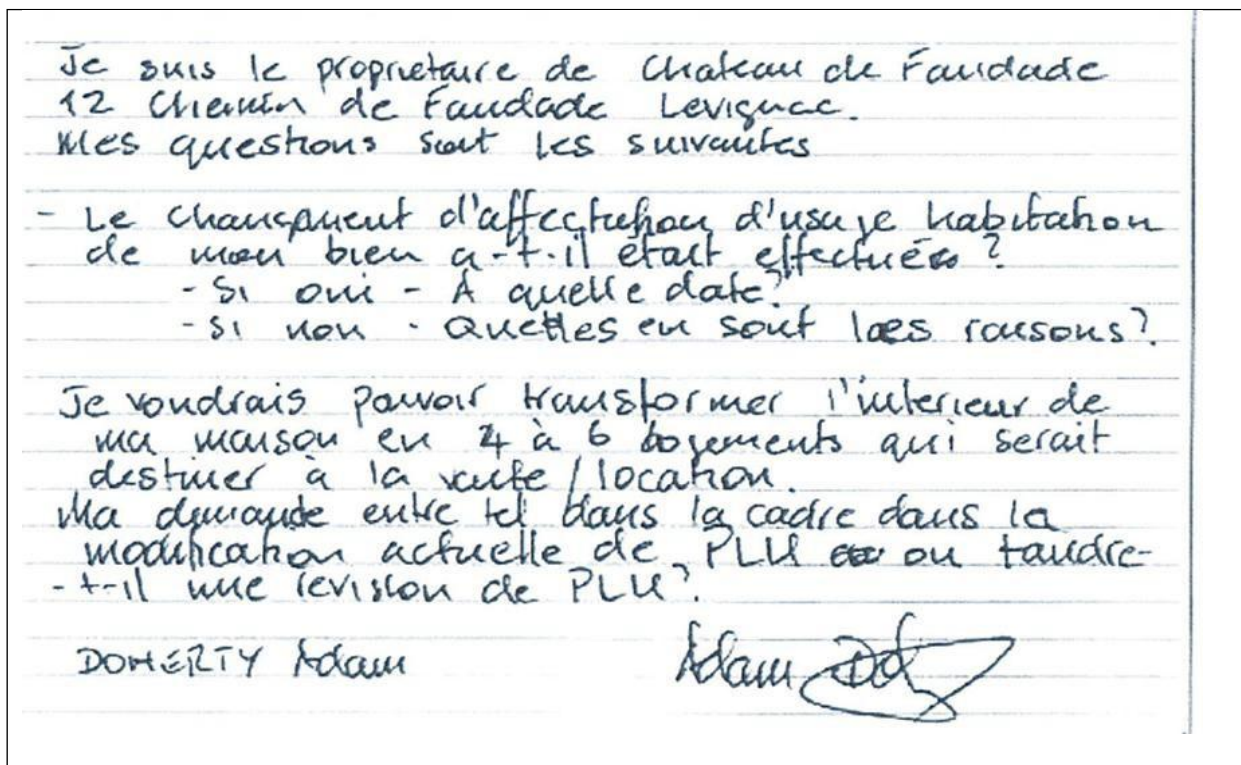 Je suis le proprietaire de Chateau de Faudade
12 Chemin de Faudade Levignac.
Mes questions sont les suivantes
- Le changement d'affectation d'usage habitation
de mon bien a-t-il était effectués ?
- Si oui - A quelle date?
- Si non - Quelles en sont les raisons?
Je voudrais pouvoir transformer l'interieur de
ma maison en 4 à 6 logements qui serait
destiner à la vente / location.
Ma demande entre tel dans la cadre dans la
modification actuelle de PLU ou faudre-
-t-il une revision de PLU?
DOHERTY Adam
Adam